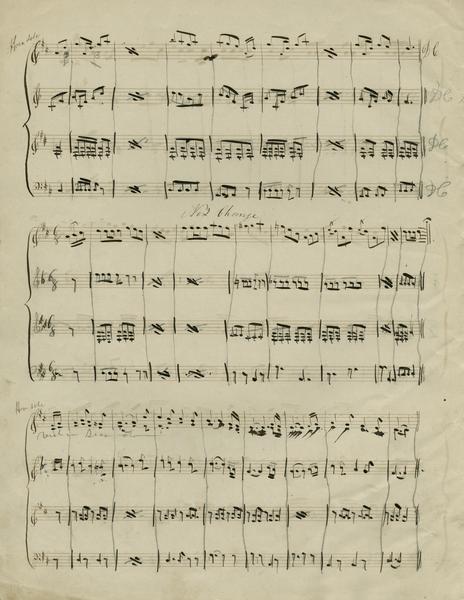 Horn Solo
DC
DC
DC
DC
No 2 Change
Horn solo